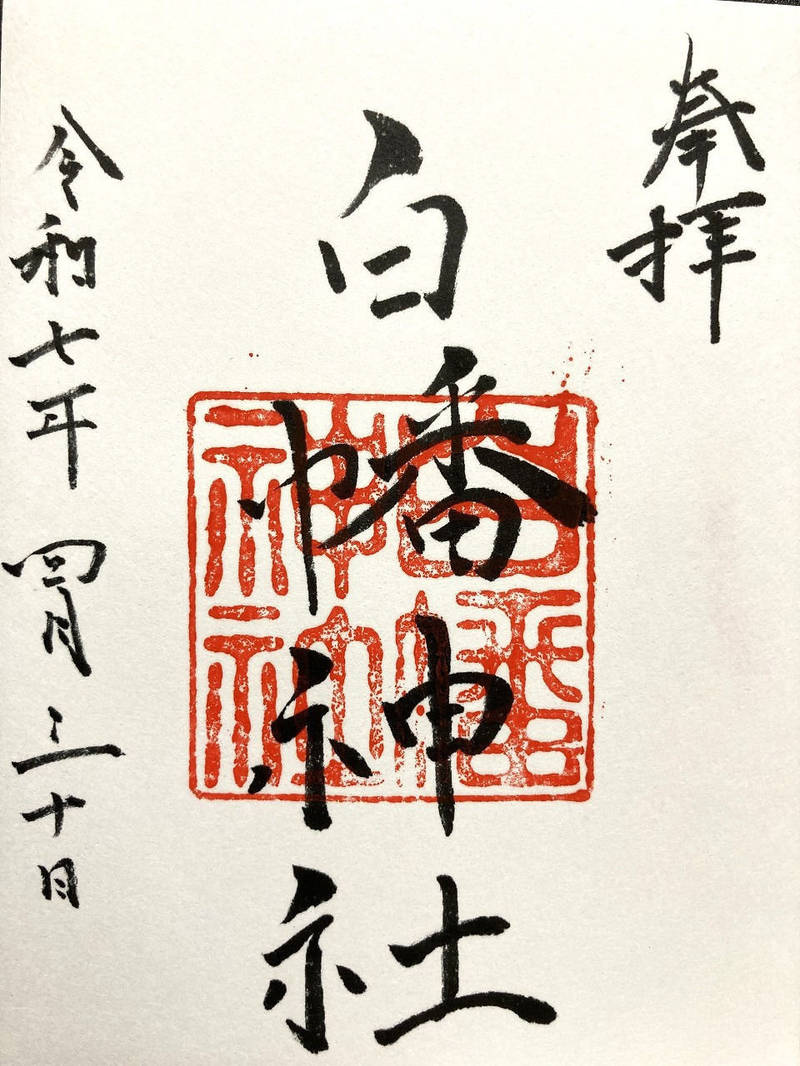 奉拝
白幡神社
白幡神社
令和七年 四月 三十日